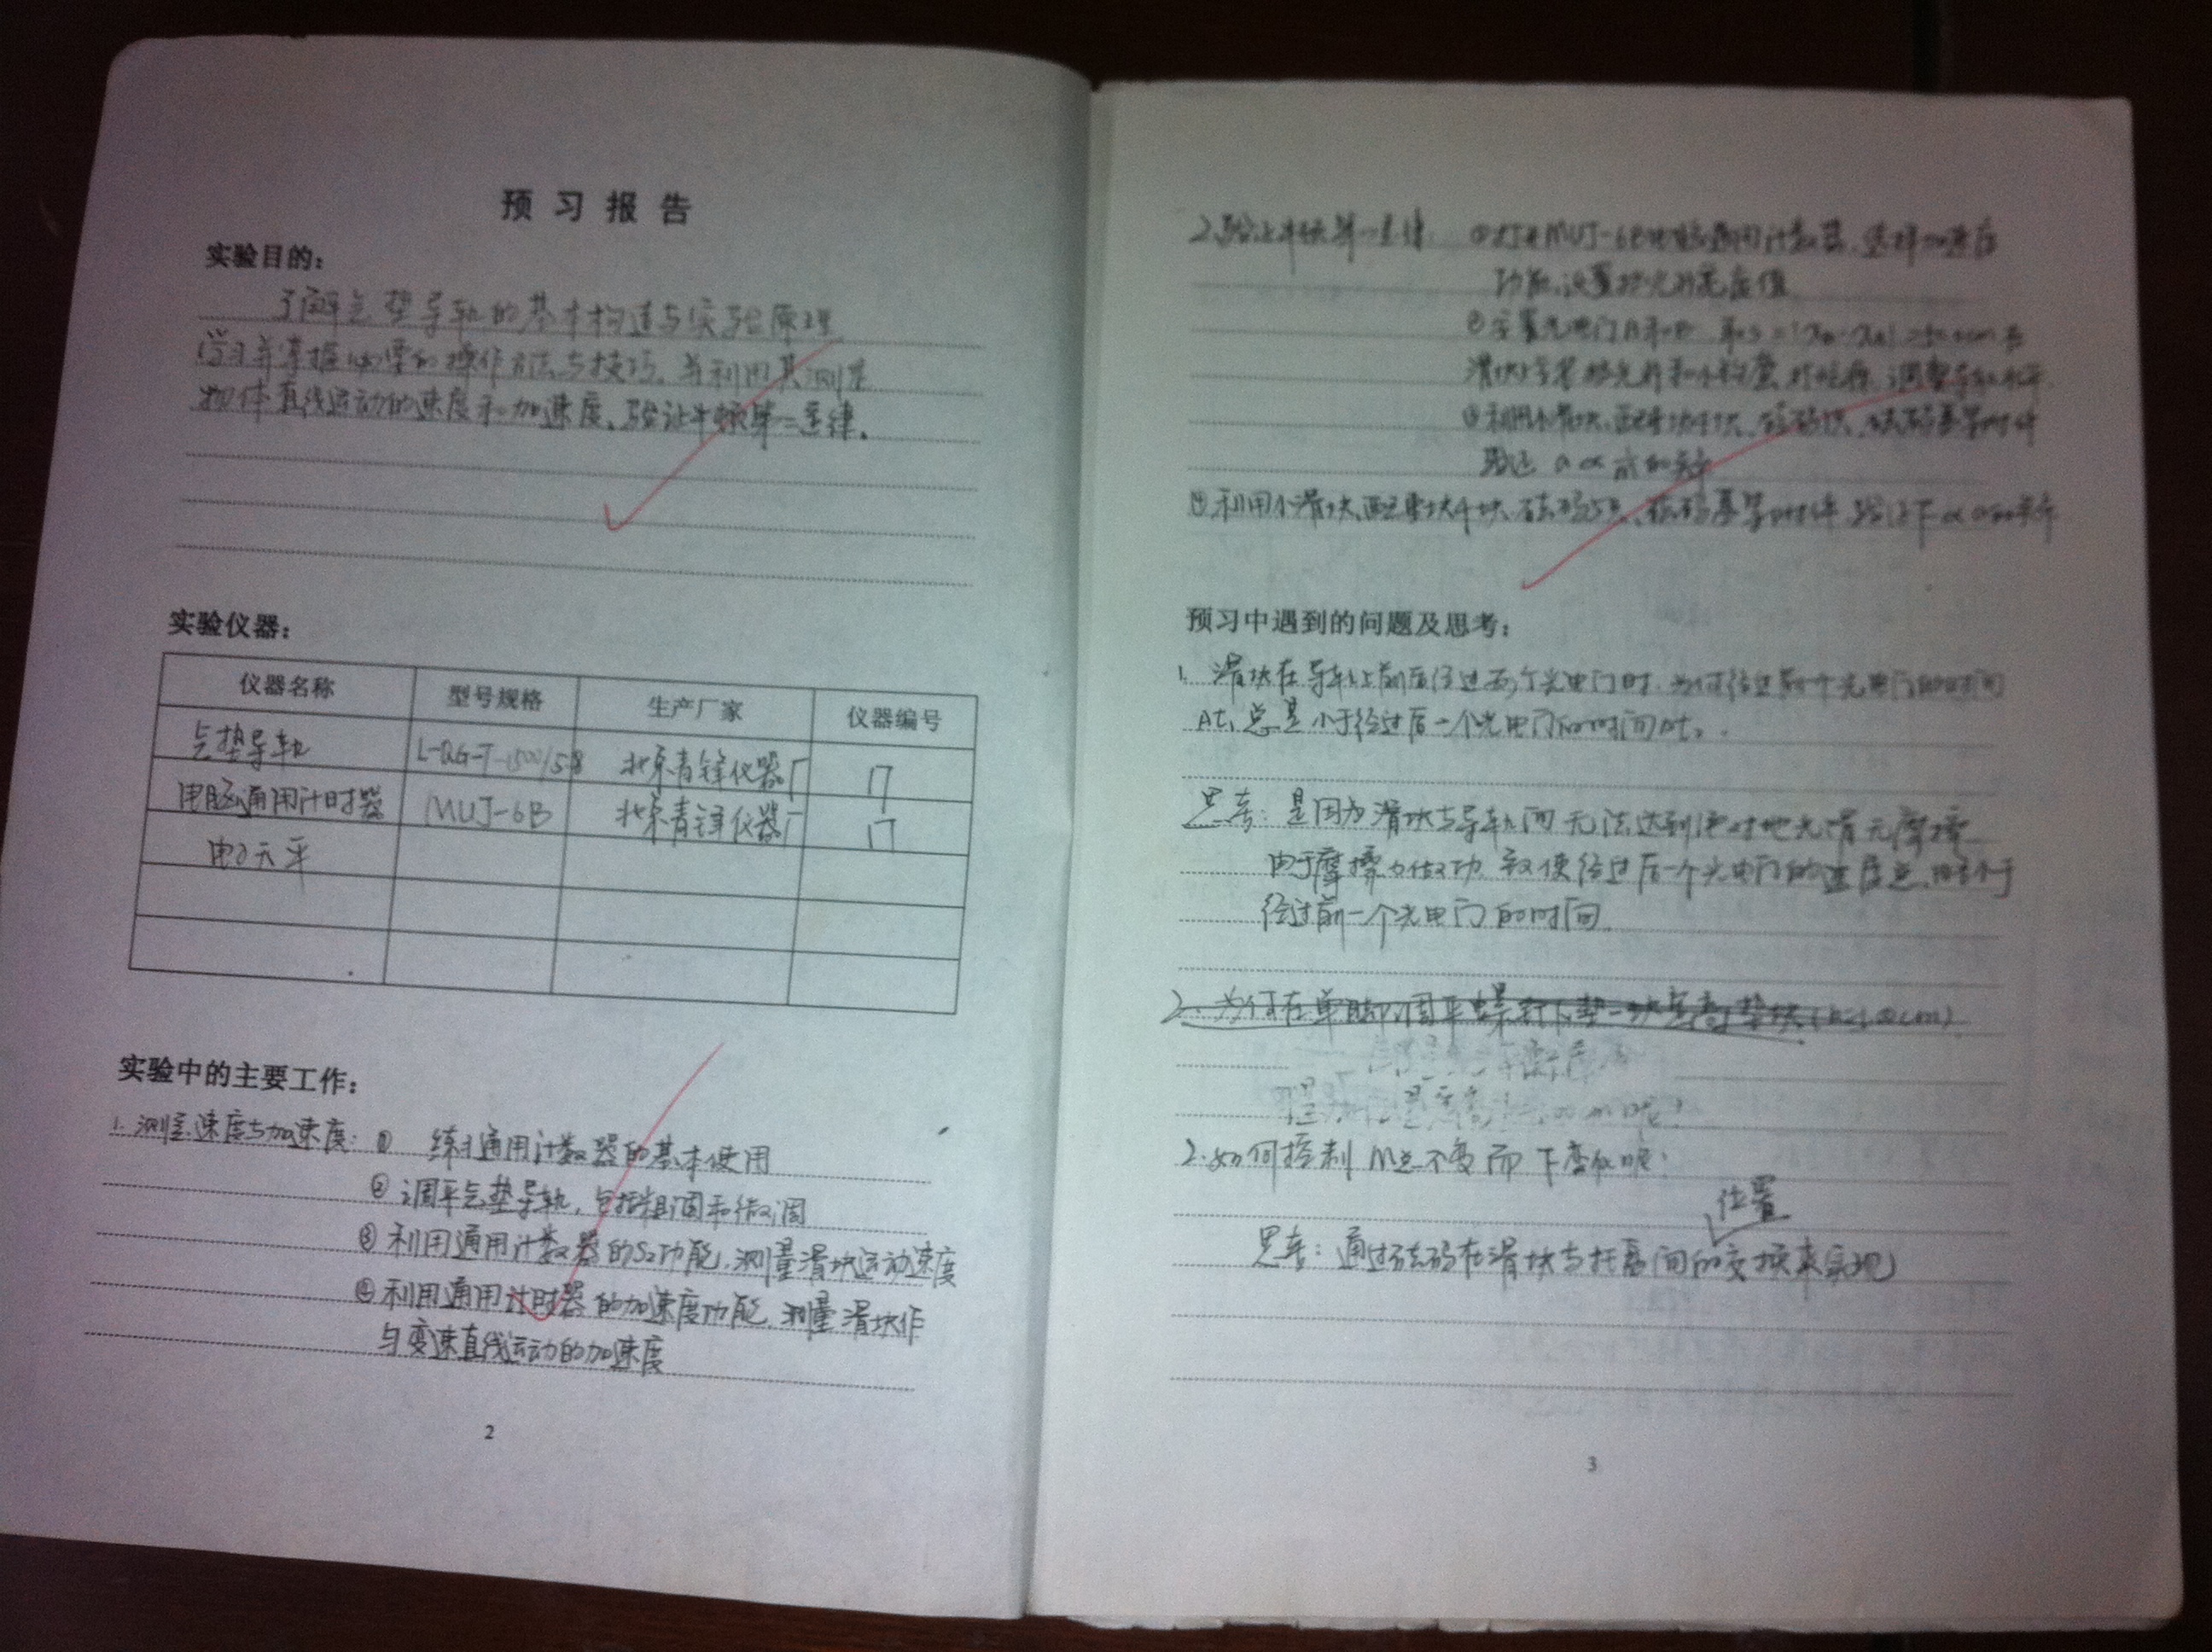 预习报告
实验目的：
了解气垫导轨的基本构造与实验原理
学习并掌握 的操作方法与技巧，并利用其测量
物体直线运动的速度和加速度、验证牛顿第二定律。
实验仪器：
仪器名称 型号规格 生产厂家 仪器编号
气垫导轨 L-QG-T-1500/5.8 北京青锋仪器厂 17
电脑通用计时器 MUJ-6B 北京青锋仪器厂 17
电子天平
实验中的主要工作：
1. 测量速度与加速度： ① 练习通用计数器的基本使用
② 调平气垫导轨，包括粗调和微调
③ 利用通用计数器的S2功能，测量滑块运动速度
④ 利用通用计时器的加速度功能，测量滑块作
匀变速直线运动的加速度
2
2. 验证牛顿第二定律 MUJ-6B电脑通用计数器，选择加速度
功能，设置挡光片宽度值
② 安置光电门A和B
滑块 挡光片和小 调整导轨水平
③ 利用小滑块、配重块4块、
验证 a∝ 的关系
④ 利用小滑块、配重块4块、砝码 验证F∝a的关系
预习中遇到的问题及思考：
1. 滑块在导轨上前后经过两个光电门时，为何经过前一个光电门的时间
Δt₁总是小于经过后一个光电门的时间Δt₂。
思考：是因为滑块与导轨间无法达到绝对地光滑无摩擦
由于摩擦力做功，致使经过后一个光电门的速度总 小于
经过前一个光电门的时间。
2. 为何在单脚调平螺钉下垫一块 垫块
2. 如何控制M总不变而F变化呢？
位置
思考：通过砝码在滑块与托盘间的变换来实现
3